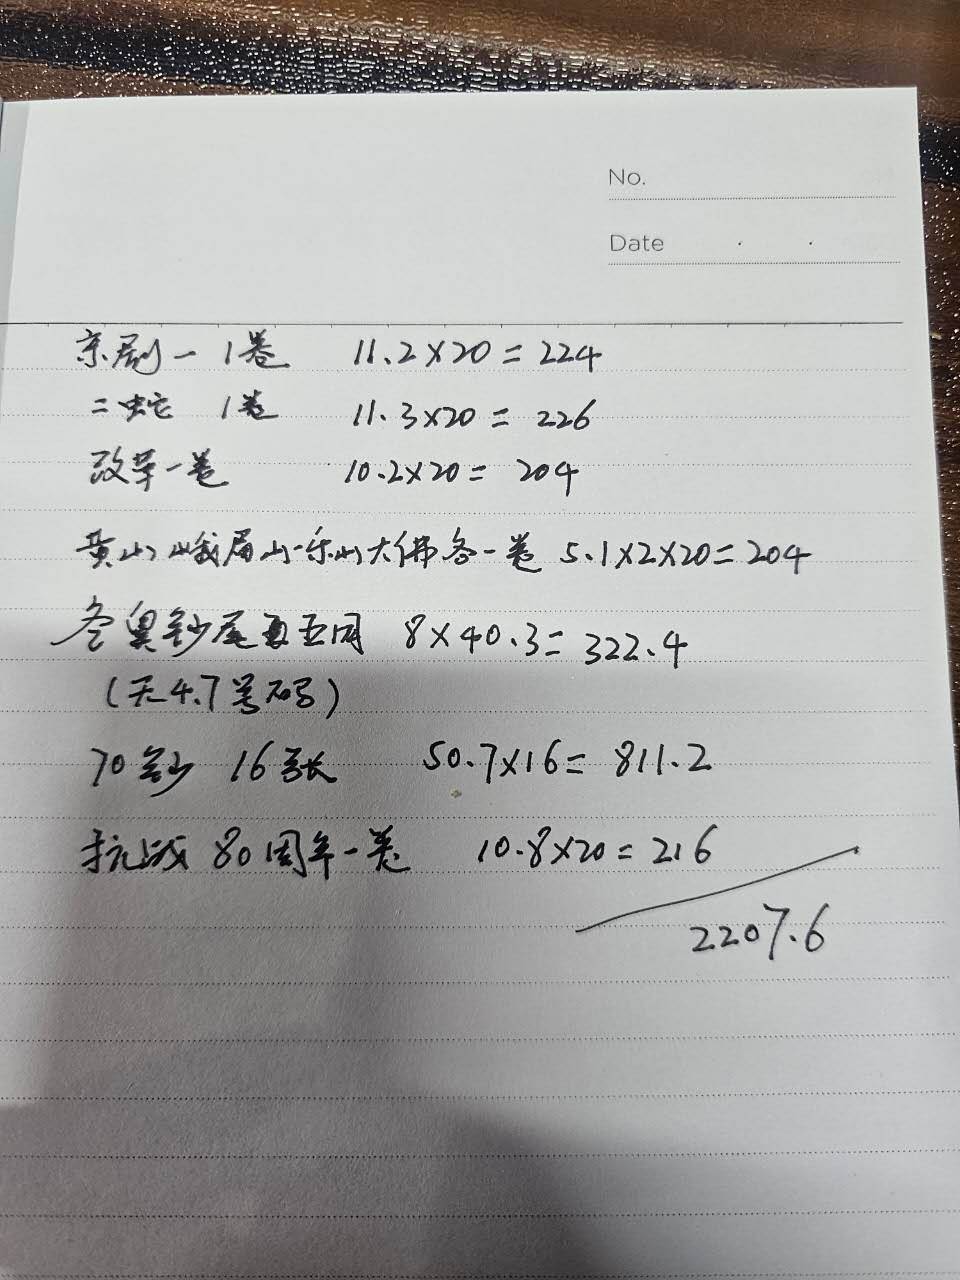 No.
Date
京剧一 1卷 11.2×20=224
二蛇 1卷 11.3×20=226
改革一卷 10.2×20=204
黄山 峨眉山-乐山大佛各一卷 5.1×2×20=204
冬奥钞尾五同 8×40.3=322.4
(无4.7号码)
70钞 16张 50.7×16=811.2
抗战80周年一卷 10.8×20=216
2207.6